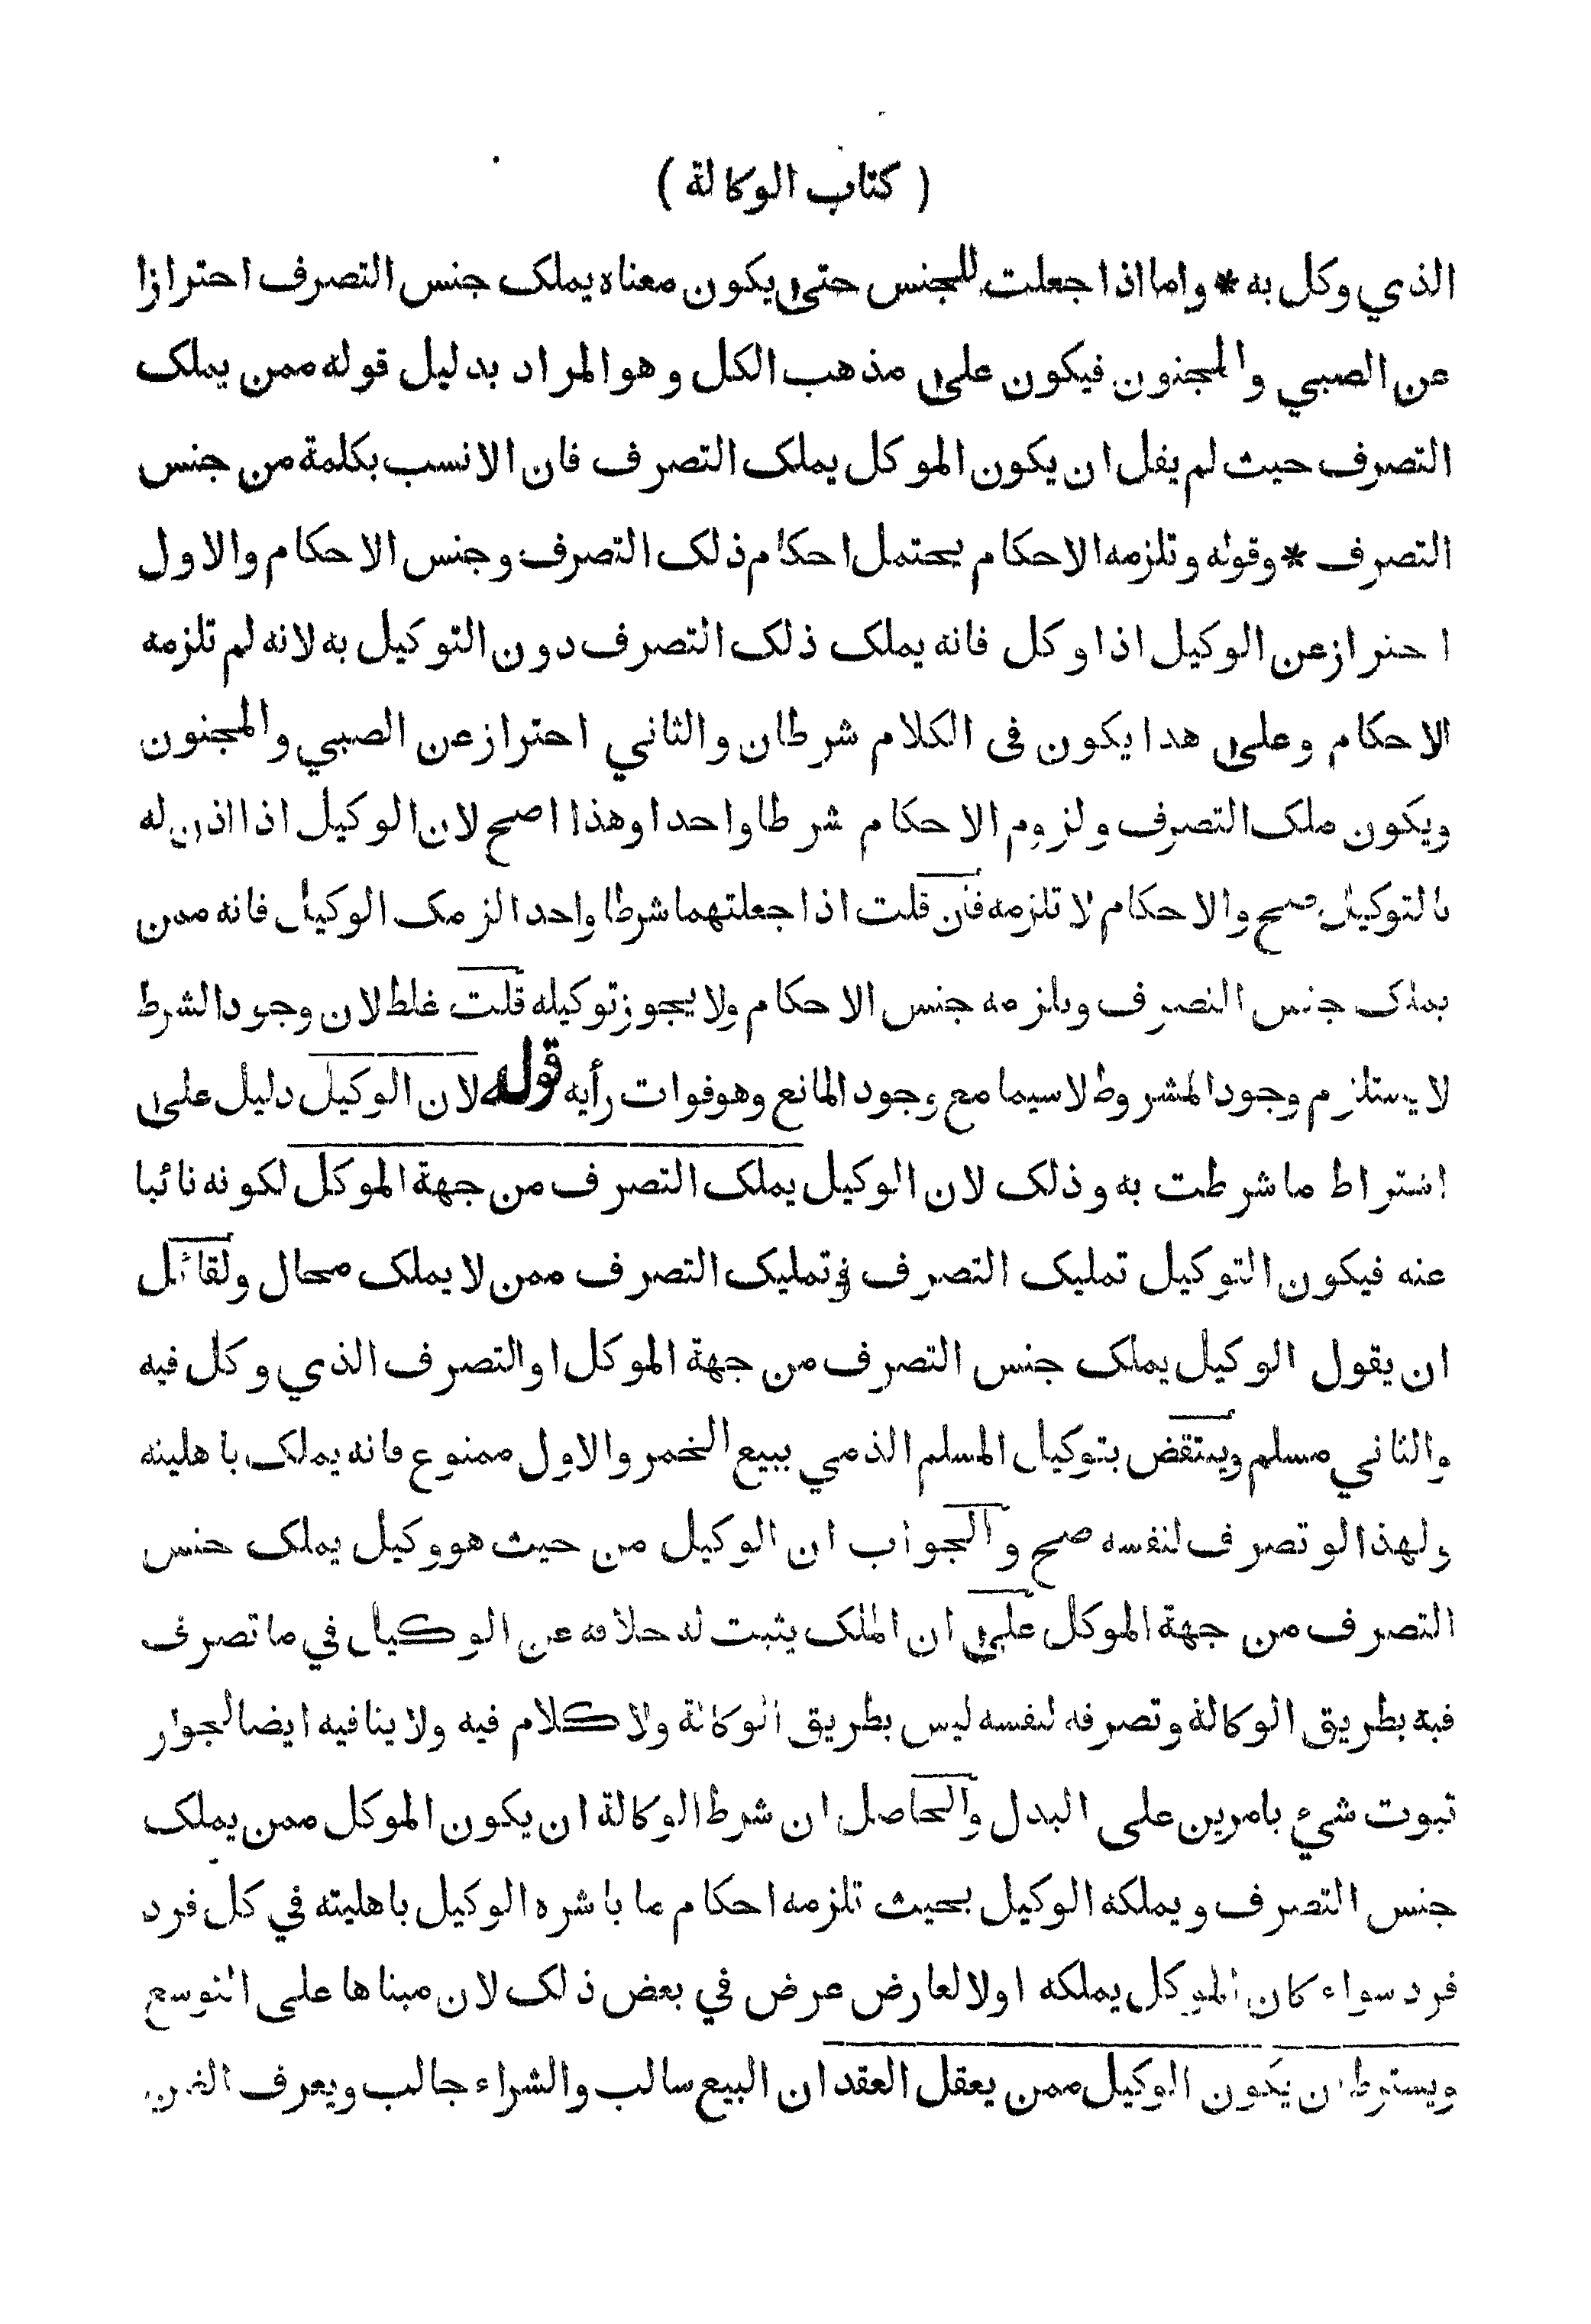 ( كتاب الوكالة )
الذي وكل به * واما اذا جعلت للجنس حتى يكون معناه يملك جنس التصرف احترازا
عن الصبي والمجنون فيكون على مذهب الكل وهو المراد بدليل قوله ممن يملك
التصرف حيث لم يقل ان يكون الموكل يملك التصرف فان الانسب بكلمة من جنس
التصرف * وقوله وتلزمه الاحكام يحتمل احكام ذلك التصرف وجنس الاحكام والاول
احتراز عن الوكيل اذا وكل فانه يملك ذلك التصرف دون التوكيل به لانه لم تلزمه
الاحكام وعلى هذا يكون في الكلام شرطان والثاني احتراز عن الصبي والمجنون
ويكون ملك التصرف ولزوم الاحكام شرطا واحدا وهذا اصح لان الوكيل اذا اذن له
بالتوكيل صح والاحكام لا تلزمه فان قلت اذا جعلتهما شرطا واحدا لزمك الوكيل فانه ممن
يملك جنس التصرف ويلزمه جنس الاحكام ولا يجوز توكيله قلت غلط لان وجود الشرط
لا يستلزم وجود المشروط لاسيما مع وجود المانع وهو فوات رأيه قوله لان الوكيل دليل على
اشتراط ما شرطت به وذلك لان الوكيل يملك التصرف من جهة الموكل لكونه نائبا
عنه فيكون التوكيل تمليك التصرف وتمليك التصرف ممن لا يملك محال ولقائل
ان يقول الوكيل يملك جنس التصرف من جهة الموكل او التصرف الذي وكل فيه
والثاني مسلم وينتقض بتوكيل المسلم الذمي ببيع الخمر والاول ممنوع فانه يملك باهليته
ولهذا لو تصرف لنفسه صح والجواب ان الوكيل من حيث هو وكيل يملك جنس
التصرف من جهة الموكل على ان الملك يثبت له خلافة عن الوكيل في ما تصرف
فيه بطريق الوكالة وتصرفه لنفسه ليس بطريق الوكالة ولا كلام فيه ولا ينافيه ايضا لجواز
ثبوت شيء بامرين على البدل والحاصل ان شرط الوكالة ان يكون الموكل ممن يملك
جنس التصرف ويملكه الوكيل بحيث تلزمه احكام ما باشره الوكيل باهليته في كل فرد
فرد سواء كان الموكل يملكه اولا لعارض عرض في بعض ذلك لان مبناها على التوسع
ويشترط ان يكون الوكيل ممن يعقل العقد ان البيع سالب والشراء جالب ويعرف الغبن